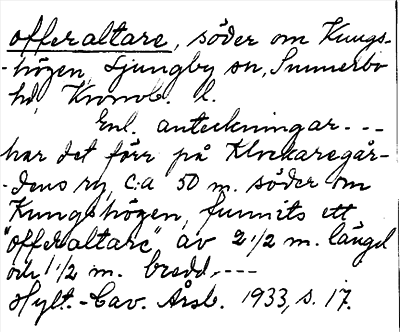 offeraltare, söder om Kungs-
-högen, Ljungby sn, Sunnerbo
hd, Kronob. l.
Enl. anteckningar---
har det förr på Klockaregår-
-dens äg, c:a 50 m. söder om
Kungshögen, funnits ett
"offeraltare" av 2 1/2 m. längd
och 1 1/2 m. bredd,---
Hylt.-Cav. Årsb. 1933, s. 17.